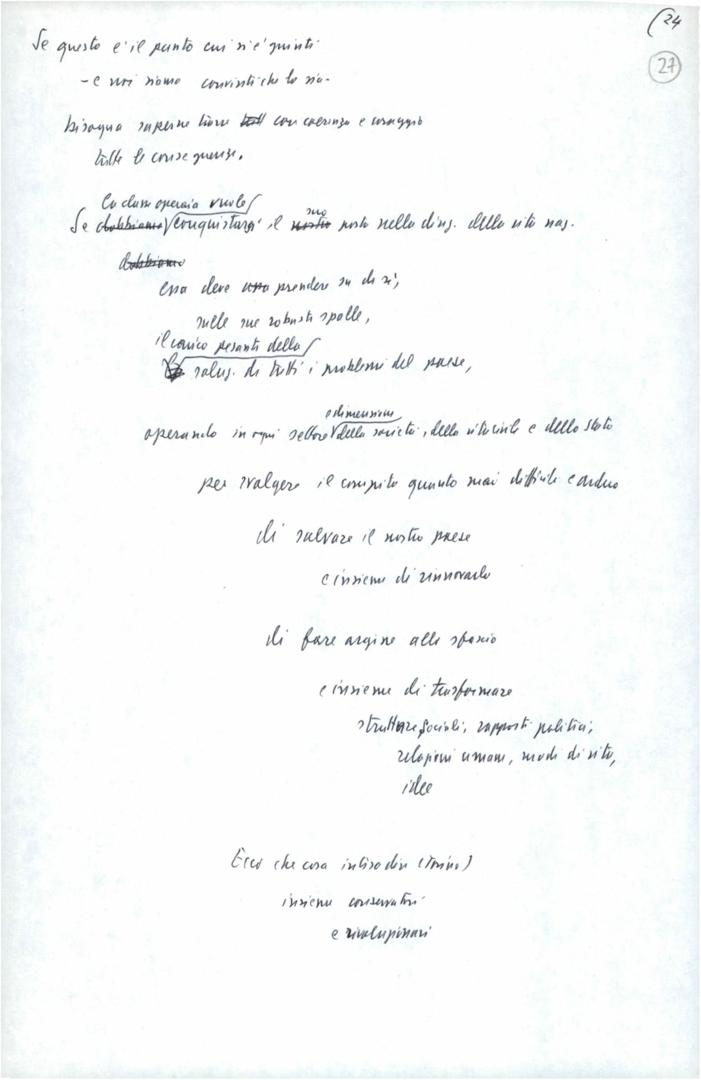 (24
27
Se questo e' il punto cui si e' giunti
- e noi siamo convinti che lo sia -
bisogna saperne trarre con coerenza e coraggio
tutte le conseguenze.
La classe operaia vuole
Se dobbiamo conquistare il nostro suo posto nella direz. della vita naz.
dobbiamo
essa deve prendere su di sé,
sulle sue robuste spalle,
il carico pesante della
soluz. di tutti i problemi del paese,
e dimensione
operando in ogni settore della società, della vita civile e dello Stato
per svolgere il compito quanto mai difficile e arduo
di salvare il nostro paese
e insieme di rinnovarlo
di fare argine allo sfascio
e insieme di trasformare
strutture sociali, rapporti politici,
relazioni umane, modi di vita,
idee
Ecco che cosa intesi dire (Torino)
insieme conservatori
e rivoluzionari